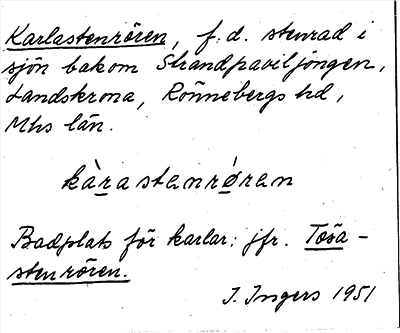 Karlastenrören, f. d. stenrad i
sjön bakom Strandpaviljongen,
Landskrona, Rönnebergs hd,
Mhs län.
kàrastenrǿren
Badplats för karlar; jfr. Tösa-
stenrören.
I. Ingers 1951